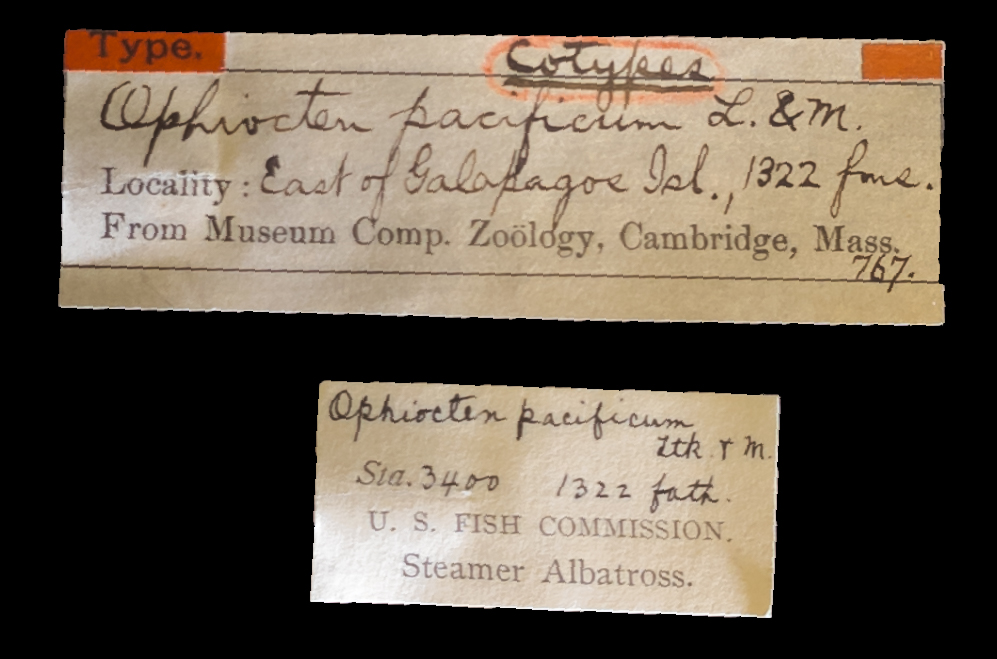 Type.
Cotypes
Ophiocten pacificum L. & M.
Locality: East of Galapagos Isl., 1322 fms.
From Museum Comp. Zoölogy, Cambridge, Mass.
767.
Ophiocten pacificum
Ltk & M.
Sta. 3400 1322 fath.
U. S. FISH COMMISSION.
Steamer Albatross.